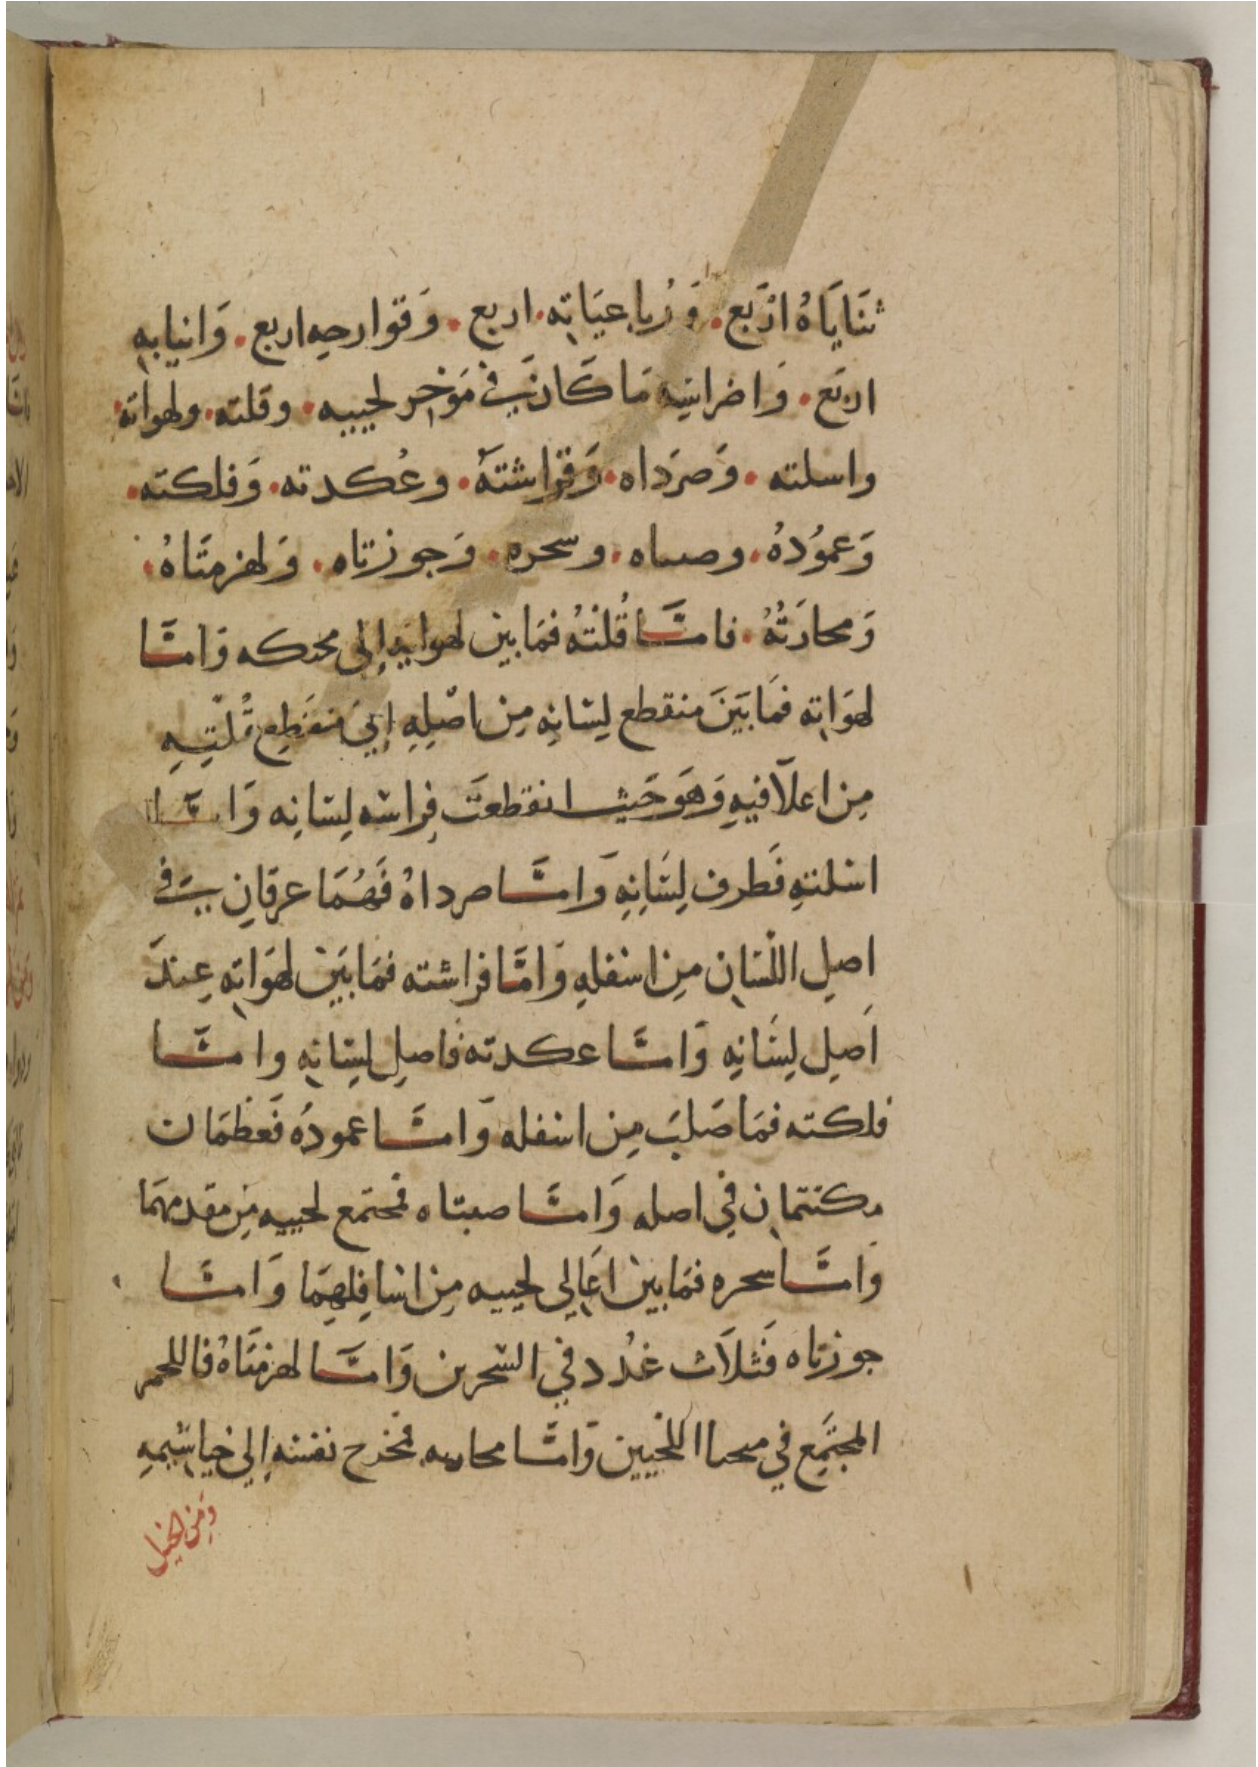 ثنَايَاهُ ارْبَع. وَرُباعيَاتِه. اربع. وَقوارحِه اربع. وَانيابهِ
اربَع. وَاضراسِه مَا كَان فى مَوَخر لحييه. وقلته. ولهواته
واسلته. وَصرَداه. وَفراشتهُ. وعُكدته. وَفلكته.
وَعموُدهُ. وصىىاه. وسحره. وَجوزتاه. وَلهزمتَاهُ.
وَمحارَتُهُ. فامَّا قُلتهُ فمَا بين لهواتهِ إلى محنكه وَامَّا
لهوَاتِه فمَا بَينَ منقطع لِسَانِهِ مِن اصْلِهِ إلى منقَطِع قُلّتِهِ
مِن اعلَا فيهِ وَهَوَ حَيث انقطعَت فِراشه لِسَانِه وَامَّا
اسَلتهِ فَطرف لِسَانِهِ وَامَّا صرداهُ فَهُمَا عرقَانِ فى
اصِل اللسَان مِن اسْفلهِ وَامَّا فراشته فمَا بَيَن لهوَاتِه عِندَ
اَصِل لِسَانِهِ وَامَّا عكدته فاصِل لِسَانِهِ وامَّا
فلكته فمَا صَلبَ مِن اسْفله وَامَّا عمودُه فَعَظمَان
مكتنمان فِي اصله وَامَّا صبتاه فمجتمع لحييه مِن مقدمهمَا
وَامَّا سحره فمَا بين اعَالِي لحييه مِن اسَافِلهِمَا وَامَّا
جوزتاه فَثلَاث غدُد في السَّحرين وَامَّا لهزمتَاهُ فاللحمر
المجتَمِع فِي محىا اللحيين وَامَّا محارىه فمخرج نفسَه إلي خياشِيمهِ
وَمِن الخيل